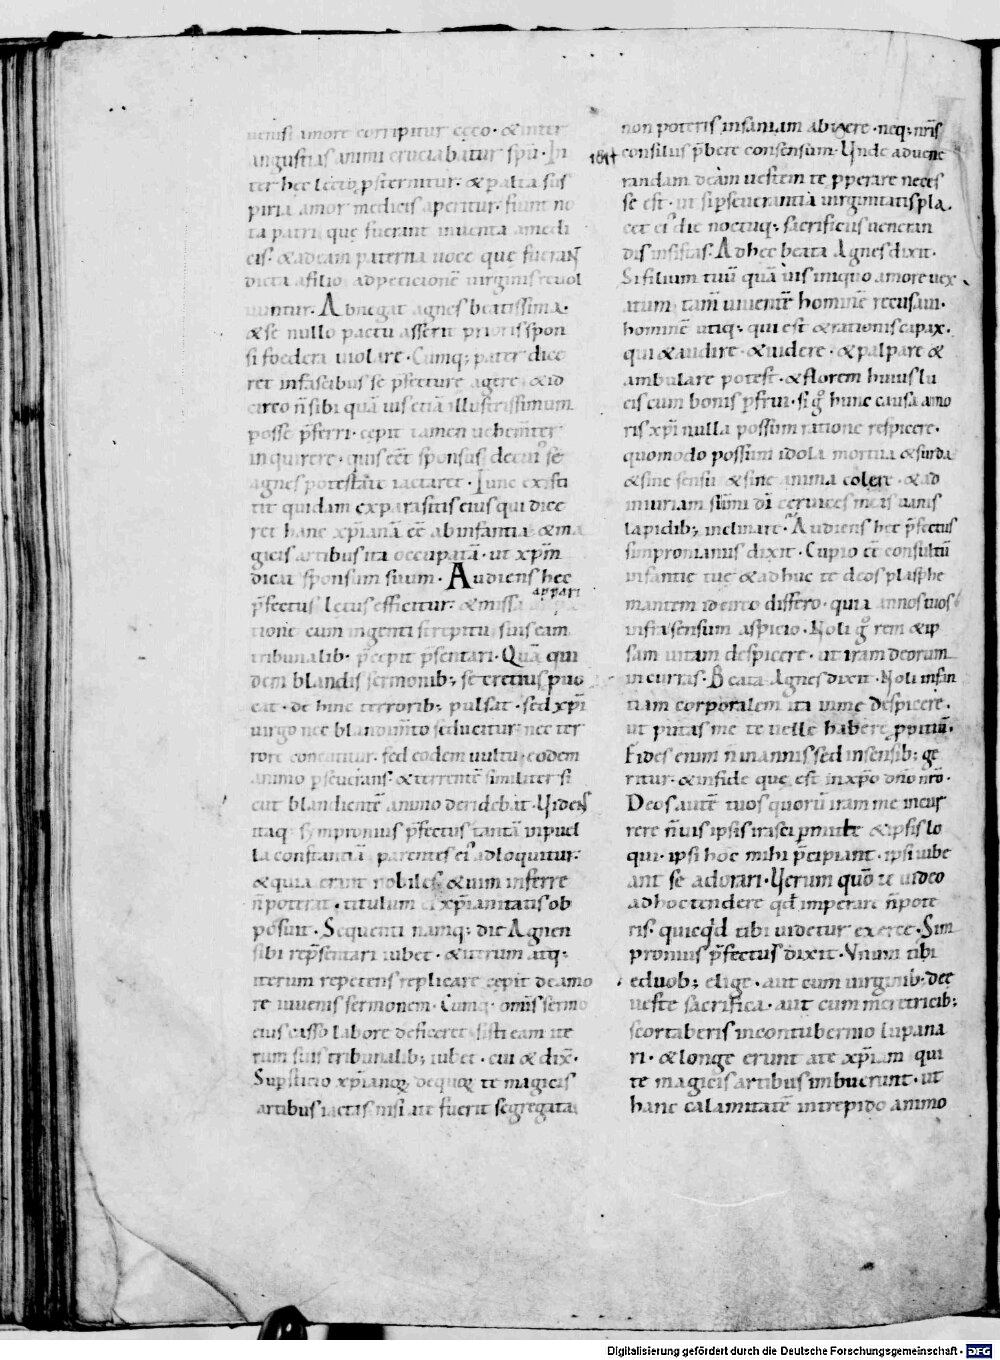 uenis amore corripitur ceco · & inter
angustias animi cruciabatur & spū · In
ter hec lecto ꝓsternitur · & p alta sus
piria amor medicis aperitur · fiunt no
ta patri que fuerant inuenta a medi
cis · & eadem paterna uoce que fuerant
dicta a filio ad peticionē uirginis reuol
uuntur · Abnegat agnes beatissima ·
& se nullo pactu asserit prioris spon
si foedera uiolare · Cumq; pater dice
ret in fascibus se p̄fecture agere · & id
circo ñ sibi quā uis etiā illustrissimum
posse p̄ferri · cepit tamen uehem̄ter
inquirere · quis eēt sponsus de cui᾽ se
agnes potestate iactaret · Tunc exsti
tit quidam ex parasitis eius qui dice
ret hanc xp̄ianā eē ab infantia & ma
gicis artibus ita occupatā · ut xp̄m
dicat sponsum suum · Audiens hec
p̄fectus letus efficitur · & missa appari
tione cum ingenti strepitu suis eam
tribunalib· p̄cepit p̄sentari · Quā qui
dem blandis sermonib; secretius puo
cat · de hinc terrorib; pulsat · sed xp̄i
uirgo nec blandim̄to seducitur nec ter
rore concutitur · sed eodem uultu · eodem
animo pseuerans · & terrentē similiter si
cut blandientē animo deridebat · Videns
itaq; sympronius p̄fectus tantā in puel
la constantiā parentes ei᾽ adloquitur ·
& quia erant nobiles · & uim inferre
ñ poterat · titulum ei xp̄ianitatis ob
posuit · Sequenti namq; die Agnen
sibi rep̄sentari iubet · & iterum atq;
iterum repetens replicare cepit de amo
re iuuenis sermonem · Cumq; omis sermo
eius casso labore deficeret sisti eam ite
rum suis tribunalib; iubet · cui & dix̄ ·
Supsticio xp̄ianoꝝ de quoꝝ te magicis
artibus iactas nisi a te fuerit segregata
non poteris insaniam abicere · neq; nr̄is
consiliis p̄bere consensum · Unde ad uene
randam deam uestem te pperare neces
se est · ut si pseuerantia uirginitatis pla
cet ei᾽ die noctuq; sacrificiis ueneran
dis insistas · Ad hec beata Agnes dixit ·
Si filium tuū quā uis iniquo amore uex
atum · tam̄ uiuentē hominē recusaui ·
hominē utiq; qui est & rationis capax ·
qui & audire · & uidere · & palpare &
ambulare potest · & florem huius lu
cis cum bonis pfrui · si gͦ hunc causa amo
ris xp̄i nulla possum ratione respicere ·
quomodo possum idola mortua & surda
& sine sensu & sine anima colere · & ad
iniuriam sum̄i di ceruices meas uanis
lapidib; inclinare · Audiens hec p̄fectus
simpronianus dixit · Cupio eē consultū
infantie tue & adhuc te deos plasphe
mantem idcirco differo · quia annos tuos
infra sensum aspicio · Noli gͦ rem & ip
sam uitam despicere · ut iram deorum
incurras · Beata Agnes dixit · Noli infan
tiam corporalem ita in me despicere ·
ut putas me te uelle habere ppitiū ·
Fides enim ñ in annis sed in sensib; ge
ritur · & in fide que est in xp̄o dn̄o nr̄o ·
Deos autē tuos quorū iram me incur
rere ñ uis ipsis irasci pmitte & ipsis lo
qui · ipsi hoc mihi p̄cipiant · ipsi iube
ant se adorari · Verum quō te uideo
ad hoc tendere qd̄ imperare ñ pote
ris · quicq'd tibi uidetur exerce · Sim
pronius p̄fectus dixit · Vnum tibi
e duob; elige · aut cum uirginib· dee
ueste sacrifica · aut cum meretricib;
scortaberis in contubernio lupana
ri · & longe erunt a te xp̄iani qui
te magicis artibus imbuerunt · ut
hanc calamitatē intrepido animo
Digitalisierung gefördert durch die Deutsche Forschungsgemeinschaft - DFG